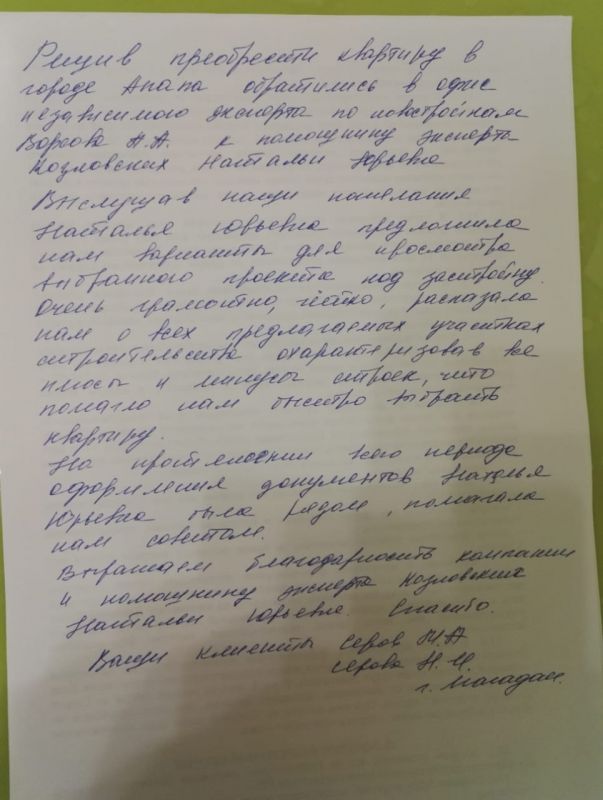 Решив преобрести квартиру в
городе Анапа обратились в офис
независимого эксперта по новостройкам
А.А. к помощнику эксперта
Козловских Натальи Юрьевне
Выслушав наши пожелания
Наталья Юрьевна предложила
нам варианты для просмотра
выбранного проекта под застройку.
Очень грамотно, чётко, рассказала
нам о всех предлагаемых участках
строительства охарактеризовав все
плюсы и минусы строек, что
помогло нам быстро выбрать
квартиру.
На протяжении всего периода
оформления документов Наталья
Юрьевна была рядом, помогала
нам советом.
Выражаем благодарность компании
и помощнику эксперта Козловских
Натальи Юрьевне. Спасибо.
Ваши клиенты Серов М.А
Серова Н.И.
г. Магадан.